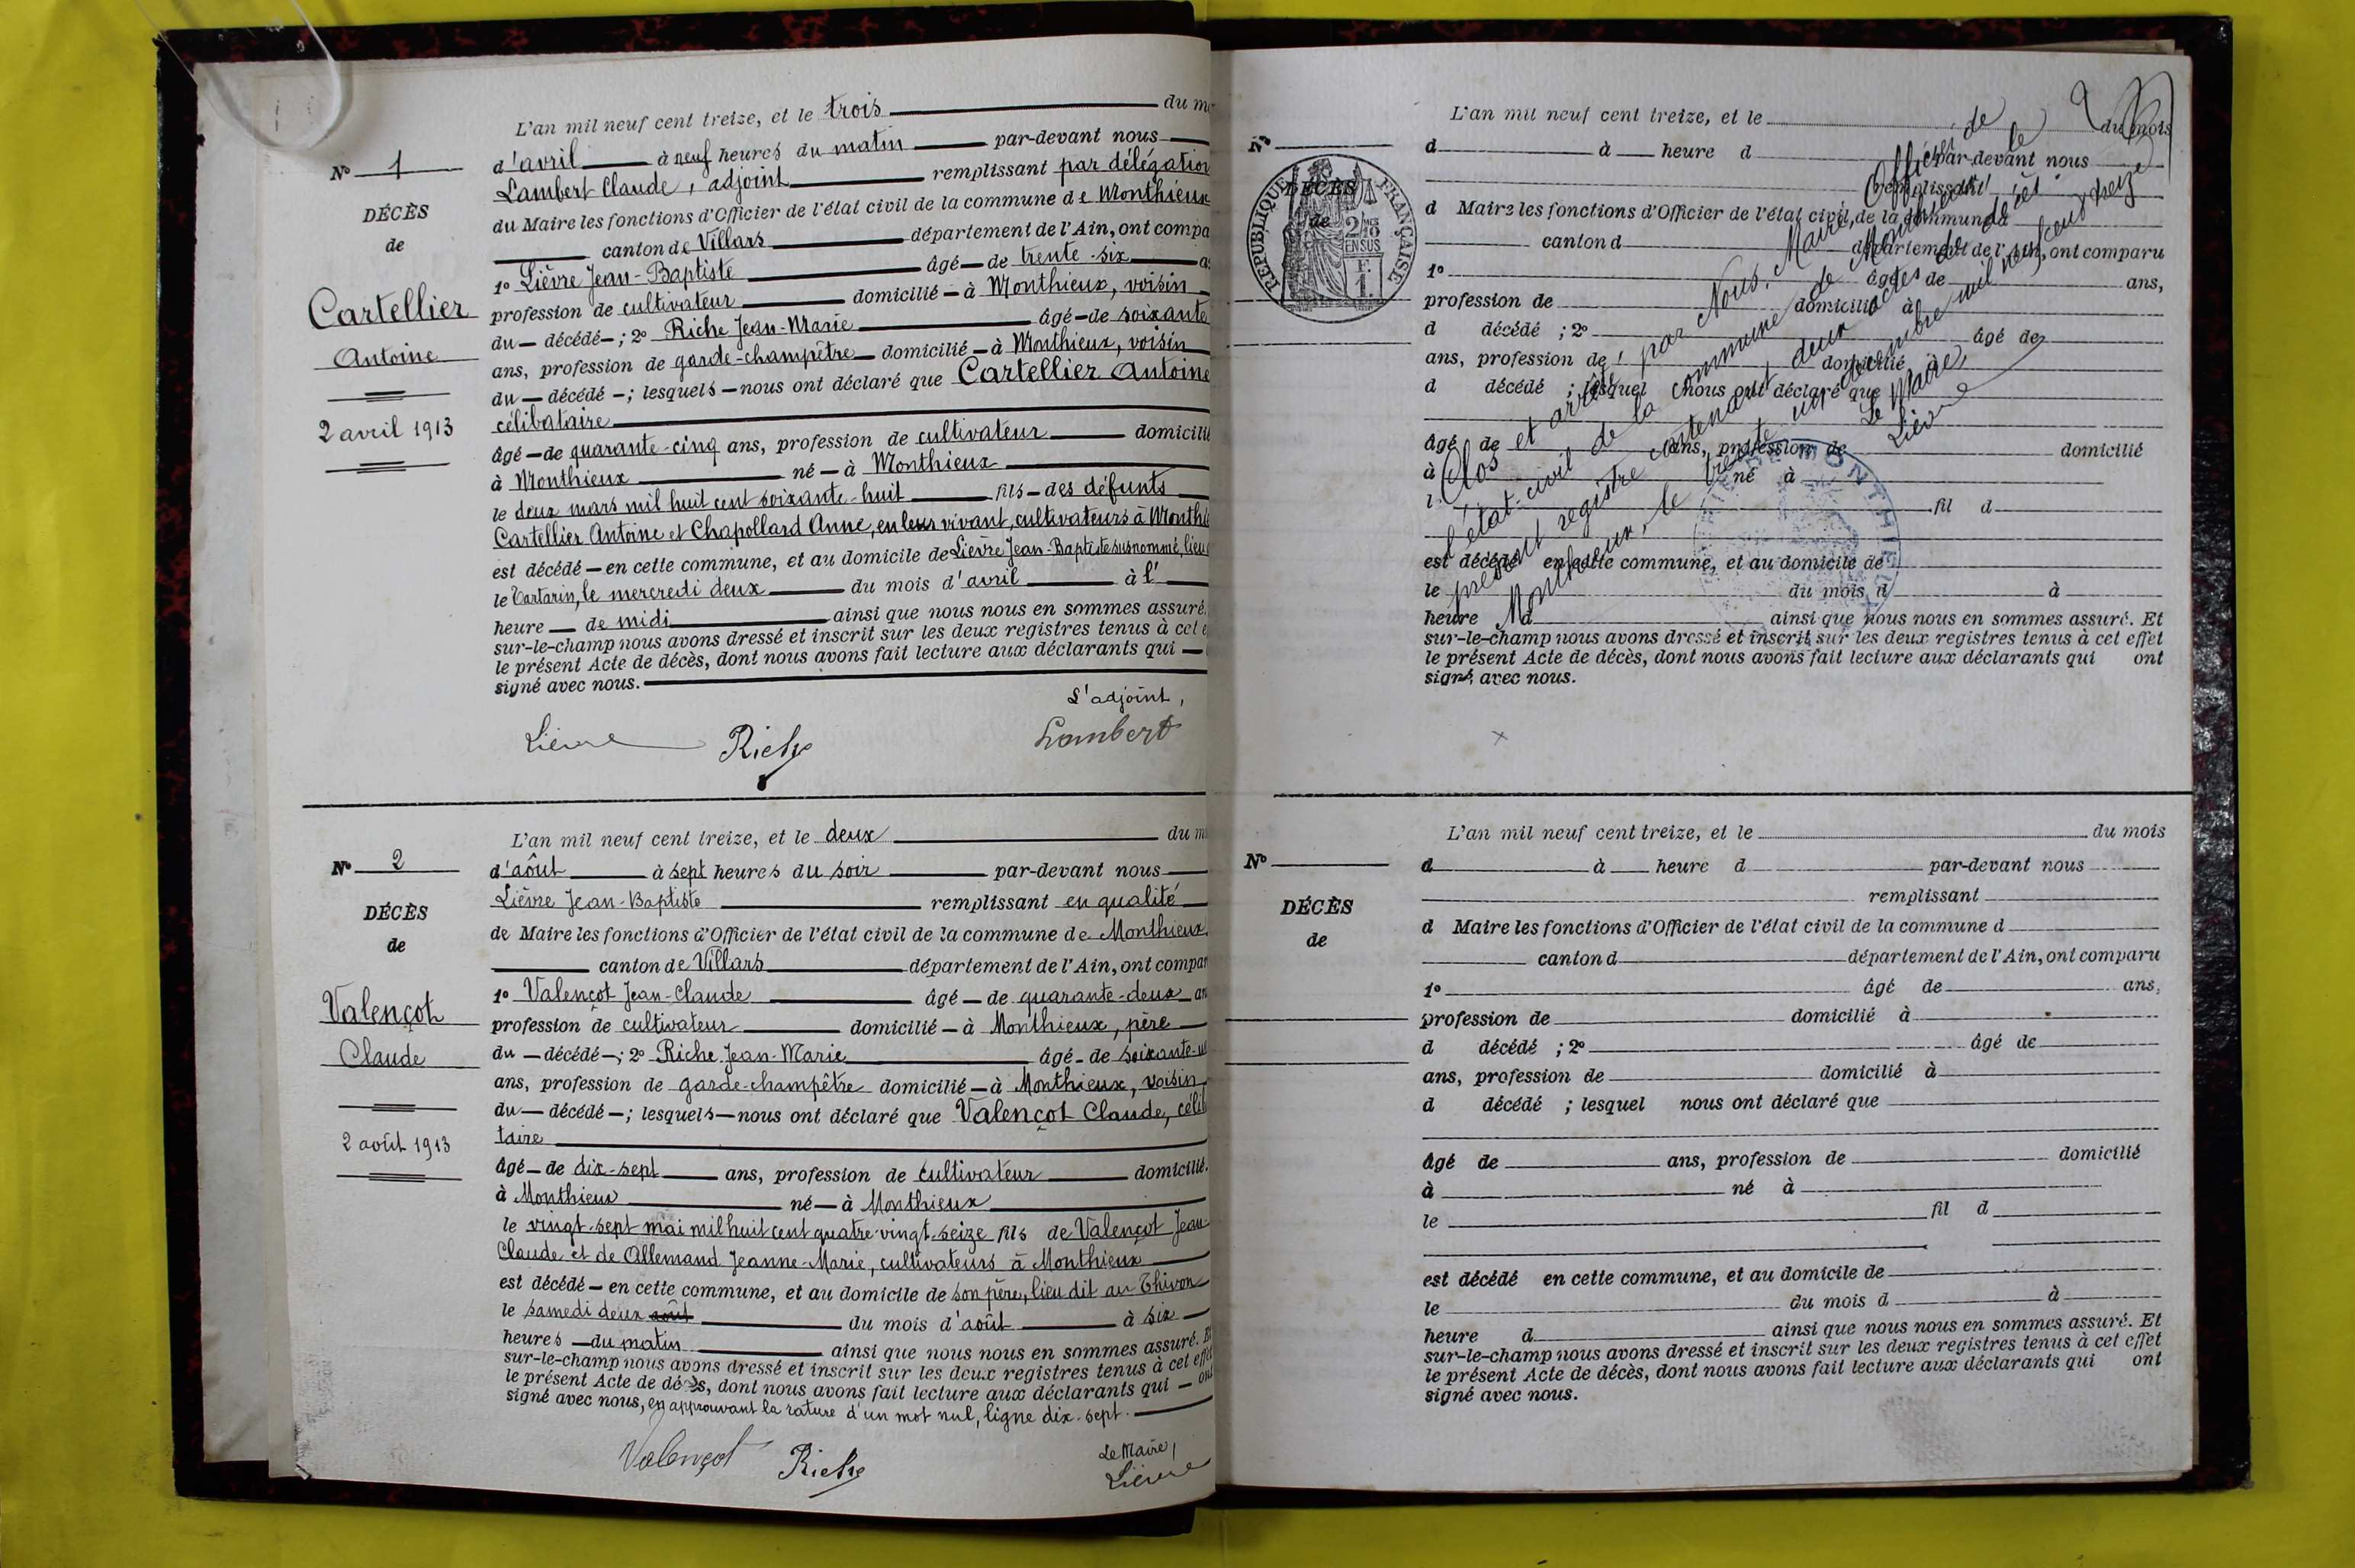 L'an mil neuf cent treize, et le trois du
N° 1
d'avril à neuf heures du matin par-devant nous
Lambert Claude, adjoint remplissant par délégation
DÉCÈS
du Maire les fonctions d'Officier de l'état civil de la commune de Monthieux
de
canton de Villars département de l'Ain, ont compa
1° Lièvre Jean-Baptiste âgé de trente-six
Cartellier
profession de cultivateur domicilié à Monthieux, voisin
du décédé ; 2° Riche Jean-Marie âgé de soixante
Antoine
ans, profession de garde-champêtre domicilié à Monthieux, voisin
du décédé ; lesquels nous ont déclaré que Cartellier Antoine
2 avril 1913
célibataire
âgé de quarante-cinq ans, profession de cultivateur domicilié
à Monthieux né à Monthieux
le deux mars mil huit cent soixante-huit fils des défunts
Cartellier Antoine et Chapollard Anne, en leur vivant, cultivateurs à Month
est décédé en cette commune, et au domicile de Lièvre Jean-Baptiste susnommé, lieu
le Tartarin, le mercredi deux du mois d'avril à l'
heure de midi ainsi que nous nous en sommes assuré.
sur-le-champ nous avons dressé et inscrit sur les deux registres tenus à cet e
le présent Acte de décès, dont nous avons fait lecture aux déclarants qui
signé avec nous.
L'adjoint,
Lièvre Riche Lambert
L'an mil neuf cent treize, et le deux du m
N° 2
d'août à sept heures du soir par-devant nous
Lièvre Jean-Baptiste remplissant en qualité
DÉCÈS
de Maire les fonctions d'Officier de l'état civil de la commune de Monthieux
de
canton de Villars département de l'Ain, ont compar
1° Valençot Jean-Claude âgé de quarante-deux an
Valençot
profession de cultivateur domicilié à Monthieux, père
du décédé ; 2° Riche Jean-Marie âgé de soixante-u
Claude
ans, profession de garde-champêtre domicilié à Monthieux, voisin
du décédé ; lesquels nous ont déclaré que Valençot Claude, céli
2 août 1913
taire
âgé de dix-sept ans, profession de cultivateur domicilié
à Monthieux né à Monthieux
le vingt-sept mai mil huit cent quatre-vingt-seize fils de Valençot Jean
Claude et de Allemand Jeanne-Marie, cultivateurs à Monthieux
est décédé en cette commune, et au domicile de son père, lieu dit au Thivon
le samedi deux août du mois d'août à six
heures du matin ainsi que nous nous en sommes assuré. Et
sur-le-champ nous avons dressé et inscrit sur les deux registres tenus à cet effet
le présent Acte de décès, dont nous avons fait lecture aux déclarants qui ont
signé avec nous, en approuvant la rature d'un mot nul, ligne dix-sept.
Le Maire,
Valençot Riche Lièvre
L'an mil neuf cent treize, et le du mois
N°
d à heure d par-devant nous
remplissant
DÉCÈS
de
RÉPUBLIQUE FRANÇAISE
d Maire les fonctions d'Officier de l'état civil de la commune d
canton d département de l'Ain, ont comparu
1° âgé de ans,
profession de domicilié à
d décédé ; 2° âgé de
ans, profession de domicilié à
d décédé ; lesquel nous ont déclaré que
âgé de ans, profession de domicilié
à né à
l fil d
est décédé en cette commune, et au domicile de
le du mois d à
heure d ainsi que nous nous en sommes assuré. Et
sur-le-champ nous avons dressé et inscrit sur les deux registres tenus à cet effet
le présent Acte de décès, dont nous avons fait lecture aux déclarants qui ont
signé avec nous.
Clos et arrêté par Nous, Maire, Officier de
l'état-civil de la commune de Monthieux, le
présent registre contenant deux actes de décès
Monthieux, le trente un décembre mil neuf cent treize
Le Maire,
Lièvre
MONTHIEUX
L'an mil neuf cent treize, et le du mois
N°
d à heure d par-devant nous
remplissant
DÉCÈS
d Maire les fonctions d'Officier de l'état civil de la commune d
de
canton d département de l'Ain, ont comparu
1° âgé de ans,
profession de domicilié à
d décédé ; 2° âgé de
ans, profession de domicilié à
d décédé ; lesquel nous ont déclaré que
âgé de ans, profession de domicilié
à né à
le fil d
est décédé en cette commune, et au domicile de
le du mois d à
heure d ainsi que nous nous en sommes assuré. Et
sur-le-champ nous avons dressé et inscrit sur les deux registres tenus à cet effet
le présent Acte de décès, dont nous avons fait lecture aux déclarants qui ont
signé avec nous.